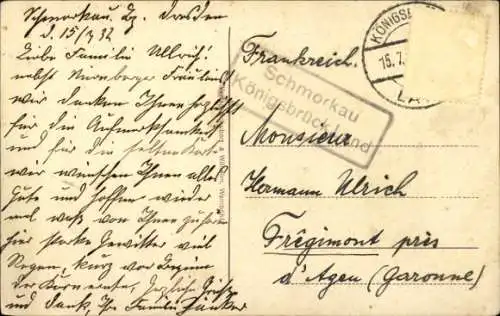 Schmorkau. Bz. Dresden
d. 15/7 32
Liebe Familie Ullrich!
nebst Nürnberger Fräulein
wir danken Ihnen herzlichst
für die Aufmerksamkeit
und für die Karte
wir wünschen Ihnen alles
Gute und hoffen wieder
mal was von Ihnen zu hören
hier starke Gewitter viel
Regen, kurz vor Beginn
der Kornernte, Herzliche Grüße
und Dank, Ihre Familie
Frankreich.
Schmorkau
Königsbrück Land
KÖNIGSB
15.7.
LA
Monsieur
Hermann Ulrich
Frêgimont près
d'Agen (Garonne)